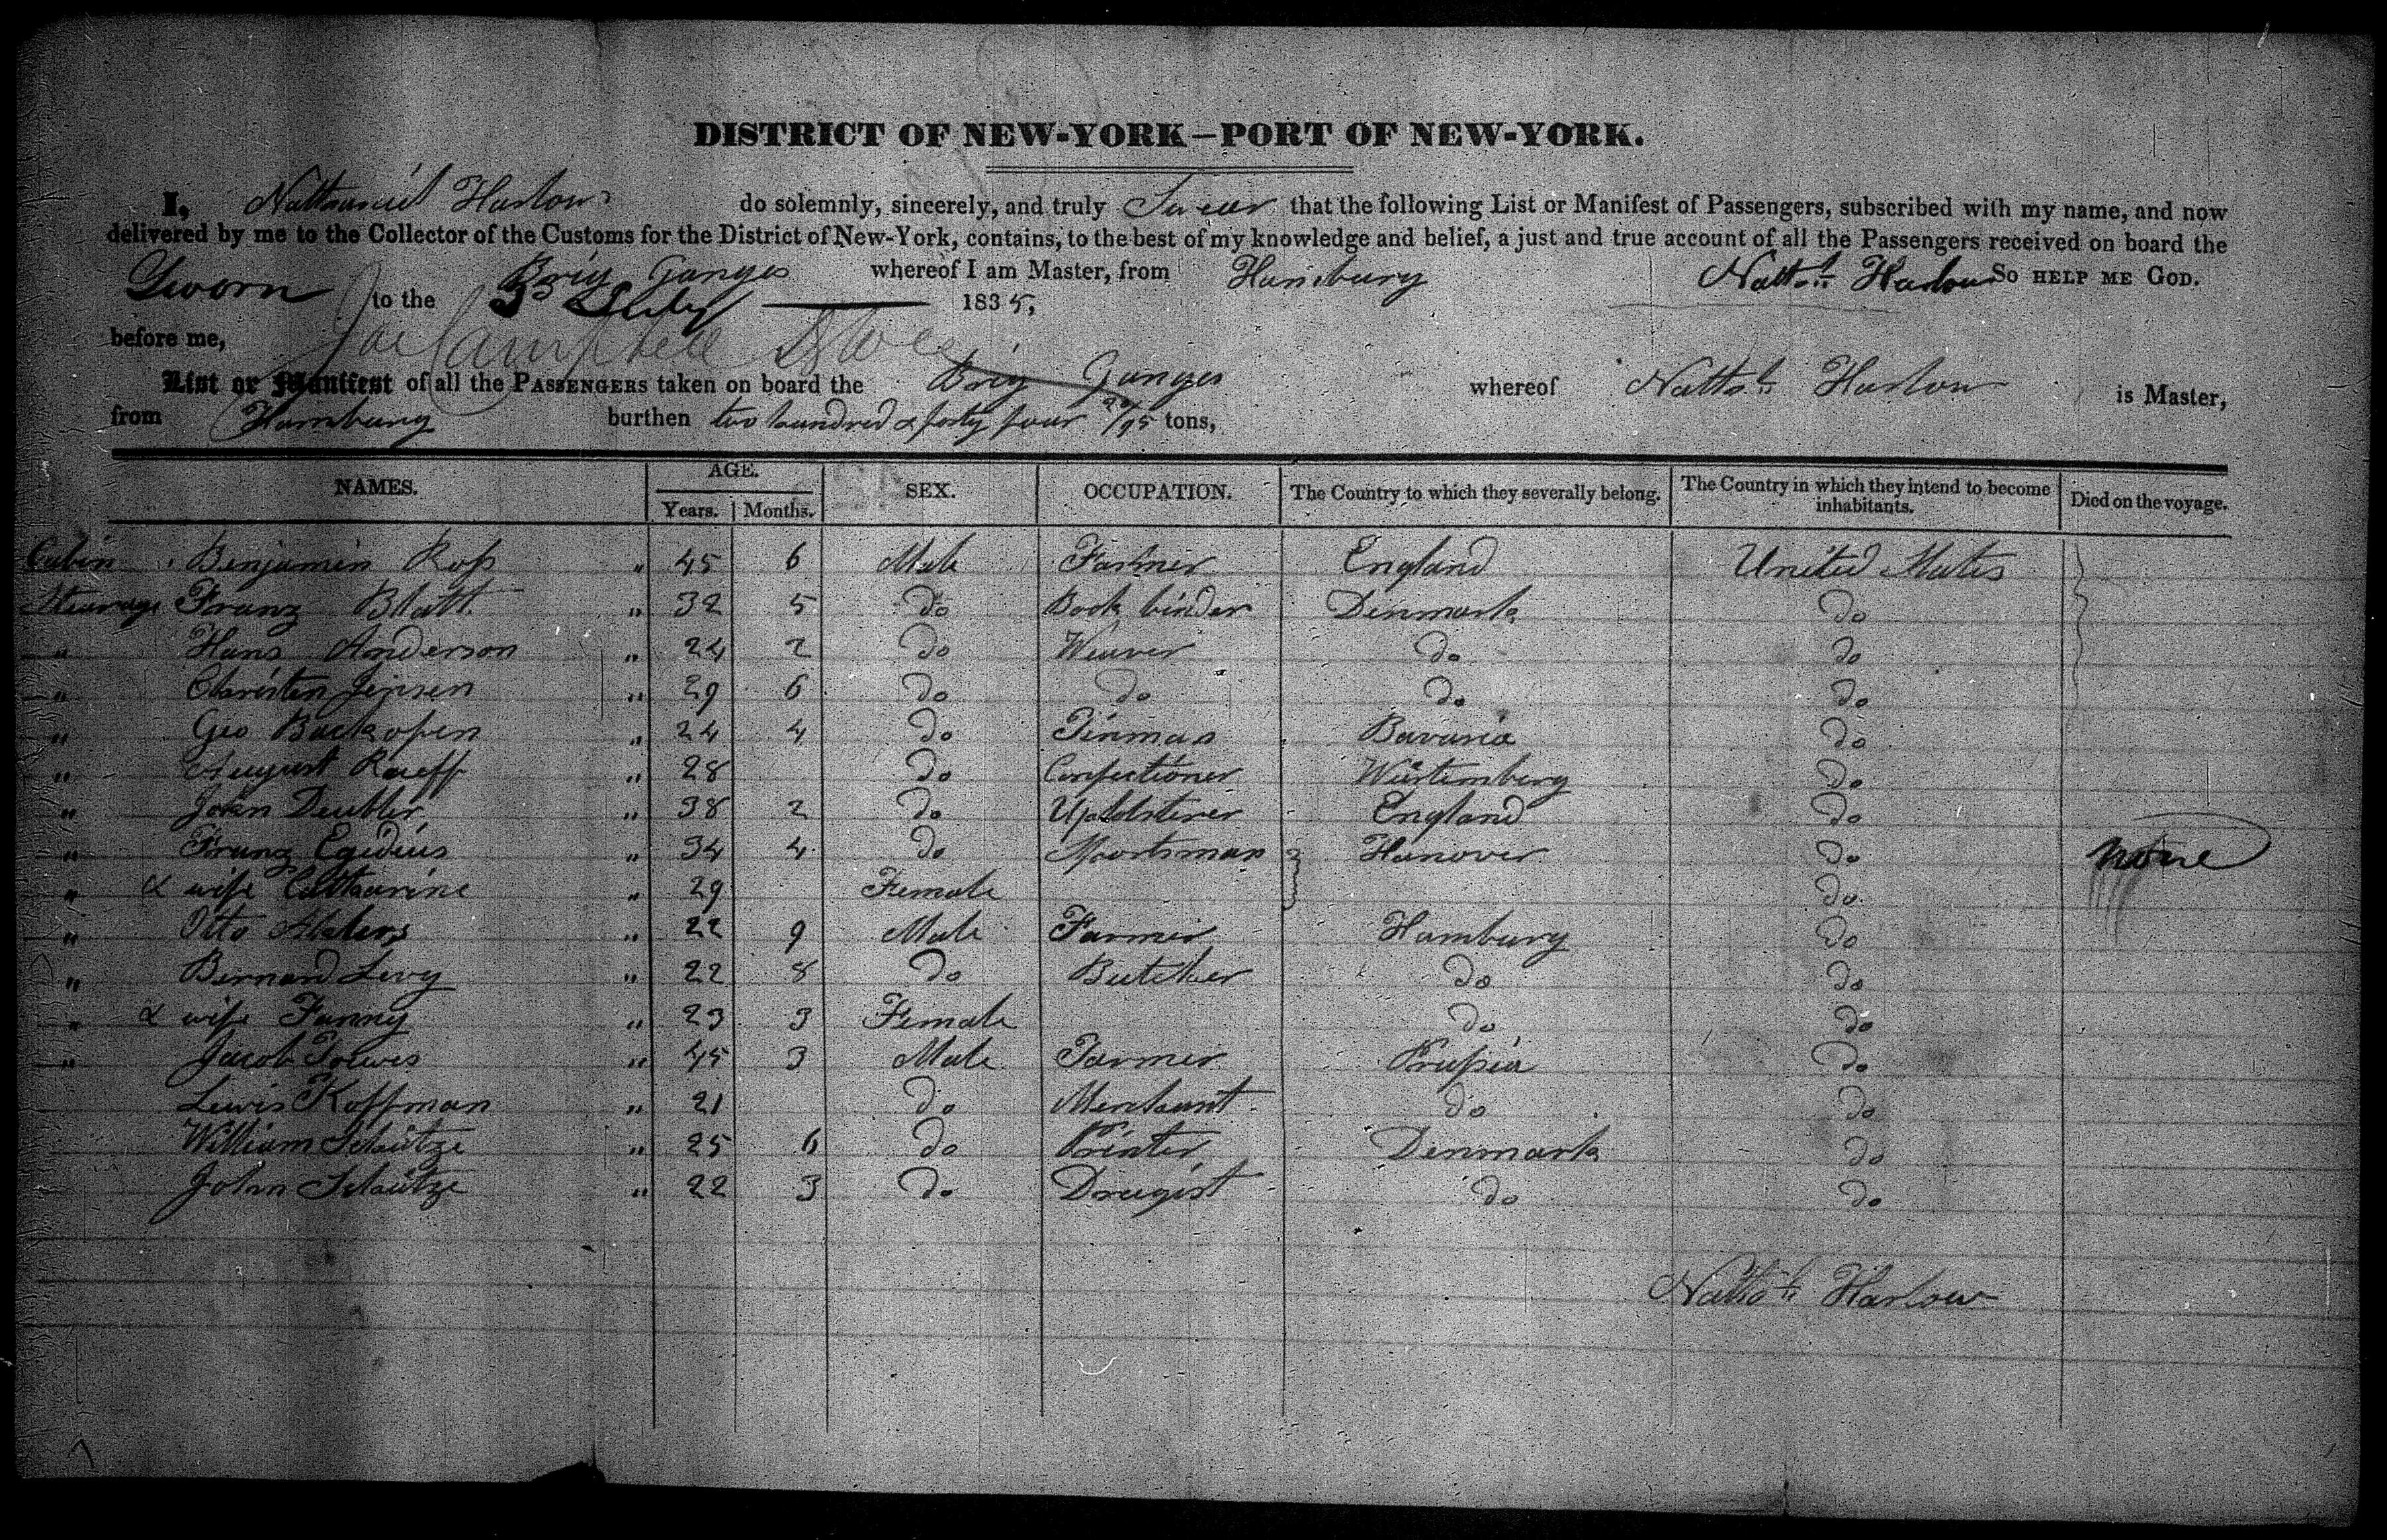 DISTRICT OF NEW-YORK—PORT OF NEW-YORK.
I, Nathaniel Harlow do solemnly, sincerely, and truly Swear that the following List or Manifest of Passengers, subscribed with my name, and now
delivered by me to the Collector of the Customs for the District of New-York, contains, to the best of my knowledge and belief, a just and true account of all the Passengers received on board the
Brig Ganges whereof I am Master, from Hamburg So HELP ME GOD.
Sworn to the 3 July 1835, Nathl. Harlow
before me,
List or Manifest of all the PASSENGERS taken on board the Brig Ganges whereof Nathl. Harlow is Master,
from Hamburg burthen two hundred & forty four /95 tons,
NAMES. AGE. Years. Months. SEX. OCCUPATION. The Country to which they severally belong. The Country in which they intend to become inhabitants. Died on the voyage.
Cabin Benjamin Ross " 45 6 Male Farmer England United States
Stearage Franz Blatt " 32 5 do Book binder Denmark do
" Hans Anderson " 24 2 do Weaver do do
" Christen Jensen " 29 6 do do do do
" Geo Backofen " 24 4 do Tinman Bavaria do
" August Raeff " 28 do Confectioner Würtemberg do
" John Deubler " 38 2 do Upholsterer England do
" Franz Egidius " 34 4 do Sportsman Hanover do none
" & wife Catharine " 29 Female do
" Otto Ahlers " 22 9 Male Farmer Hamburg do
" Bernard Levy " 22 8 do Butcher do do
" & wife Fanny " 23 3 Female do do
" Jacob Toewes " 45 3 Male Farmer Prussia do
Lewis Koffman " 21 do Merchant do do
William Schütze " 25 6 do Printer Denmark do
John Schütze " 22 3 do Drugist do do
Nathl. Harlow